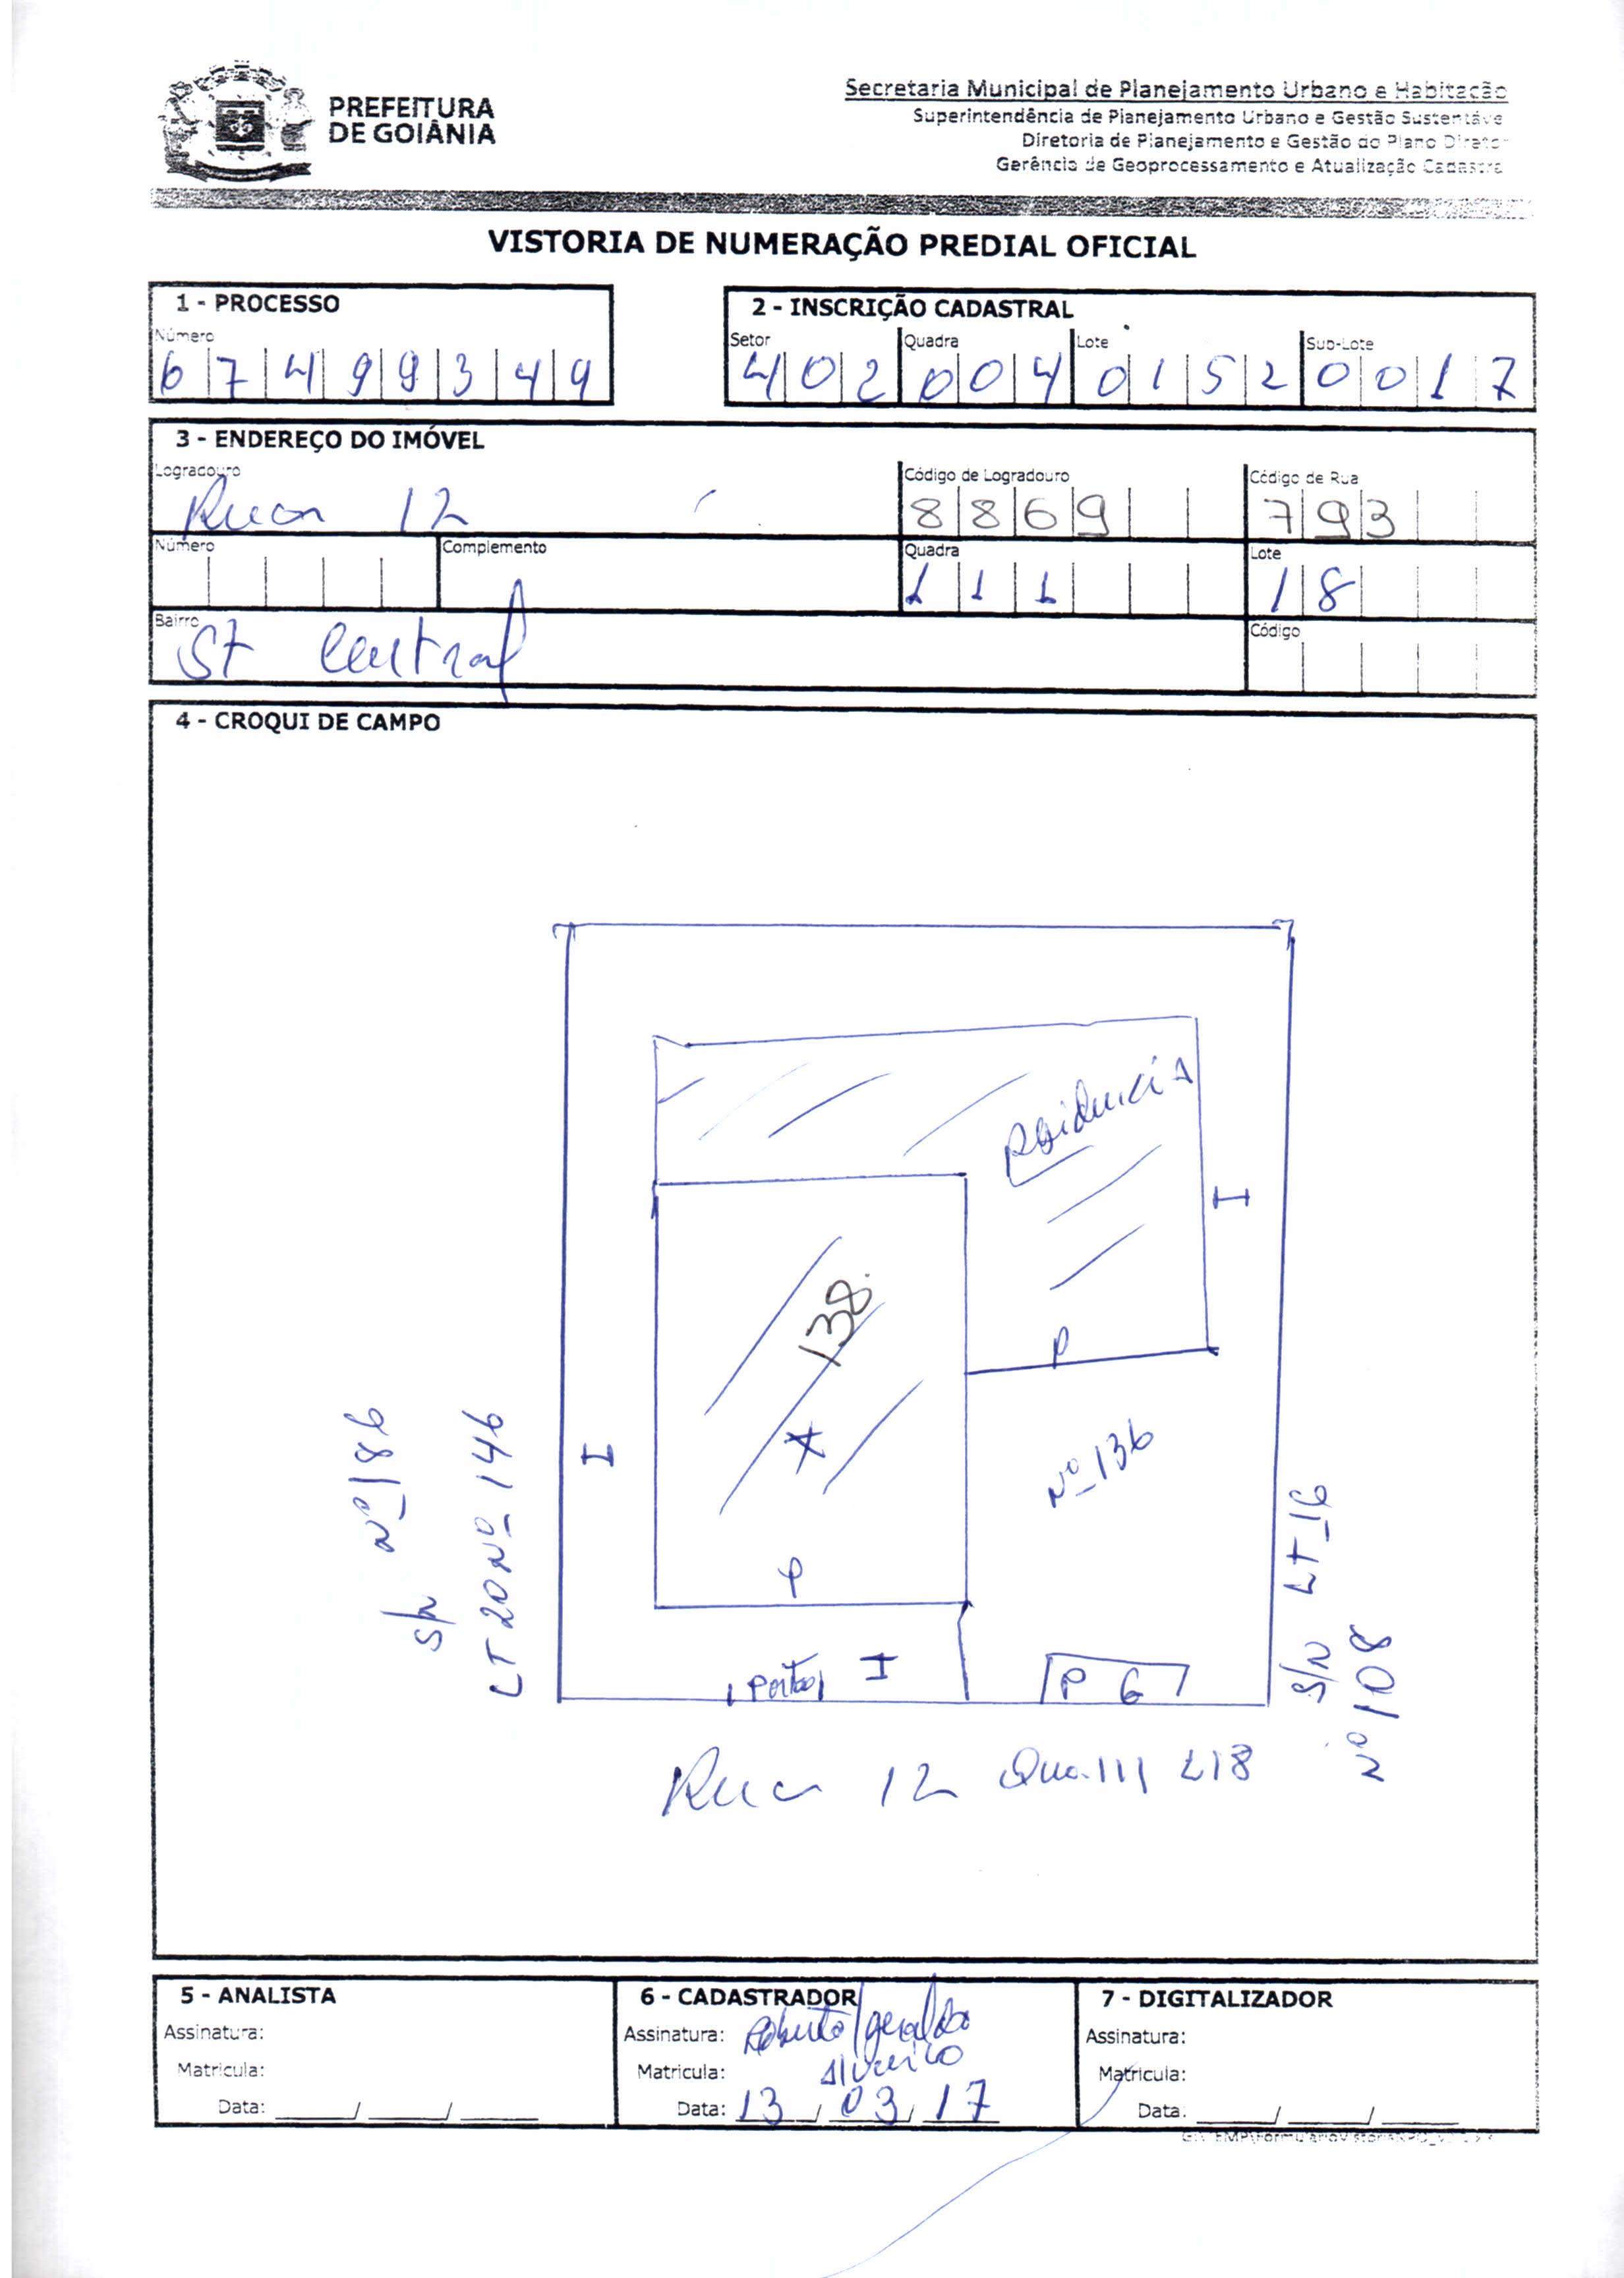 PREFEITURA
DE GOIÂNIA
Secretaria Municipal de Planejamento Urbano e Habitação
Superintendência de Planejamento Urbano e Gestão Sustentáve
Diretoria de Planejamento e Gestão do Plano Diretor
Gerência de Geoprocessamento e Atualização Cadastra
VISTORIA DE NUMERAÇÃO PREDIAL OFICIAL
1 - PROCESSO
Número
6 7 4 9 9 3 4 9
2 - INSCRIÇÃO CADASTRAL
Setor Quadra Lote Sub-Lote
4 0 2 0 0 4 0 1 5 2 0 0 1 7
3 - ENDEREÇO DO IMÓVEL
Logradouro Código de Logradouro Código de Rua
Rua 12 8 8 6 9 7 9 3
Número Complemento Quadra Lote
1 1 1 1 8
Bairro Código
St Central
4 - CROQUI DE CAMPO
Residencia
I
138.
P
X
I
Nº 136
Nº 186
S/N
LT 20 Nº 146
P
LT 16
S/N
Nº 108
Portão I
P G
Rua 12 Qua. 111 L18
5 - ANALISTA
Assinatura:
Matricula:
Data: ____/____/____
6 - CADASTRADOR
Assinatura: Roberto/geraldo
Matricula:
Data: 13/03/17
7 - DIGITALIZADOR
Assinatura:
Matricula:
Data. ____/____/____